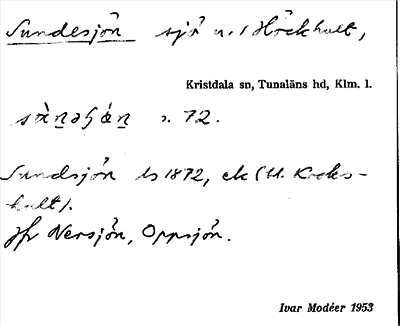 Sundesjön sjö n. i Höckhult,
Kristdala sn, Tunaläns hd, Klm. l.
s. 72.
Sundsjön ls 1872, ek (U. Kroks-
hult).
Jfr Nersjön, Oppsjön.
Ivar Modéer 1953